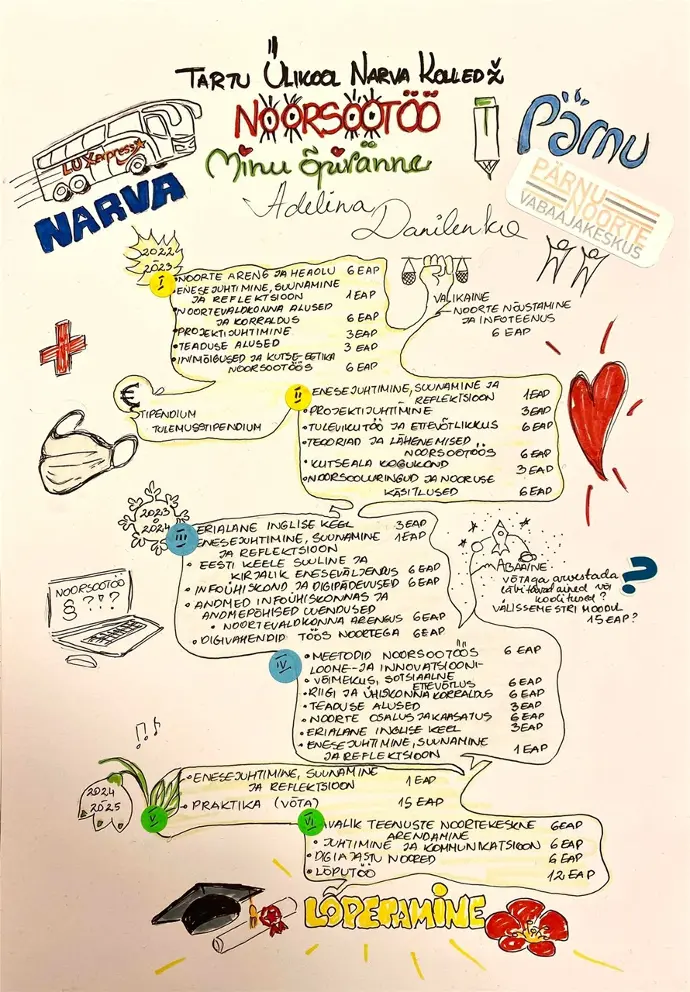 TARTU ÜLIKOOL NARVA KOLLEDŽ
NOORSOOTÖÖ
Minu õpiränne
Adelina Danilenko
LUXexpress
NARVA
Pärnu
PÄRNU
NOORTE
VABAAJAKESKUS
2022
2023
I
• NOORTE ARENG JA HEAOLU 6 EAP
ENESEJUHTIMINE, SUUNAMINE
JA REFLEKTSIOON 1 EAP
NOORTEVALDKONNA ALUSED
JA KORRALDUS 6 EAP
• PROJEKTIJUHTIMINE 3 EAP
• TEADUSE ALUSED 3 EAP
• INIMÕIGUSED JA KUTSE-EETIKA
NOORSOOTÖÖS 6 EAP
VALIKAINE
NOORTE NÕUSTAMINE
JA INFOTEENUS
6 EAP
€
STIPENDIUM
TULEMUSSTIPENDIUM
II
ENESEJUHTIMINE, SUUNAMINE JA
REFLEKTSIOON 1 EAP
• PROJEKTIJUHTIMINE 3 EAP
• TULEVIKUTÖÖ JA ETTEVÕTLIKKUS 6 EAP
• TEOORIAD JA LÄHENEMISED
NOORSOOTÖÖS 6 EAP
• KUTSEALA KOGUKOND 3 EAP
• NOORSOOUURINGUD JA NOORUSE
KÄSITLUSED 6 EAP
2023
2024
III
ERIALANE INGLISE KEEL 3 EAP
ENESEJUHTIMINE, SUUNAMINE 1 EAP
JA REFLEKTSIOON
• EESTI KEELE SUULINE JA
KIRJALIK ENESEVÄLJENDUS 6 EAP
• INFOÜHISKOND JA DIGIPÄDEVUSED 6 EAP
• ANDMED INFOÜHISKONNAS JA
ANDMEPÕHISED LAHENDUSED
• NOORTEVALDKONNA ARENGUS 6 EAP
• DIGIVAHENDID TÖÖS NOORTEGA 6 EAP
VABAAINE
VÕTAGA arvestada
läbitavad ained või
koolitused?
VÄLISSEMESTRI MOODUL
15 EAP?
?
NOORSOOTÖÖ
§ ?'?'?
IV
• MEETODID NOORSOOTÖÖS 6 EAP
LOOME- JA INNOVATSIOONI-
• VÕIMEKUS, SOTSIAALNE
ETTEVÕTLUS 6 EAP
• RIIGI JA ÜHISKONNA KORRALDUS 6 EAP
• TEADUSE ALUSED 3 EAP
• NOORTE OSALUS JA KAASATUS 6 EAP
• ERIALANE INGLISE KEEL 3 EAP
• ENESEJUHTIMINE, SUUNAMINE
JA REFLEKTSIOON 1 EAP
2024
2025
V
• ENESEJUHTIMINE, SUUNAMINE
JA REFLEKTSIOON 1 EAP
• PRAKTIKA (VÕTA) 15 EAP
VI
AVALIK TEENUSTE NOORTEKESKNE 6 EAP
ARENDAMINE
• JUHTIMINE JA KOMMUNIKATSIOON 6 EAP
• DIGIAJASTU NOORED 6 EAP
• LÕPUTÖÖ 12 EAP
LÕPETAMINE